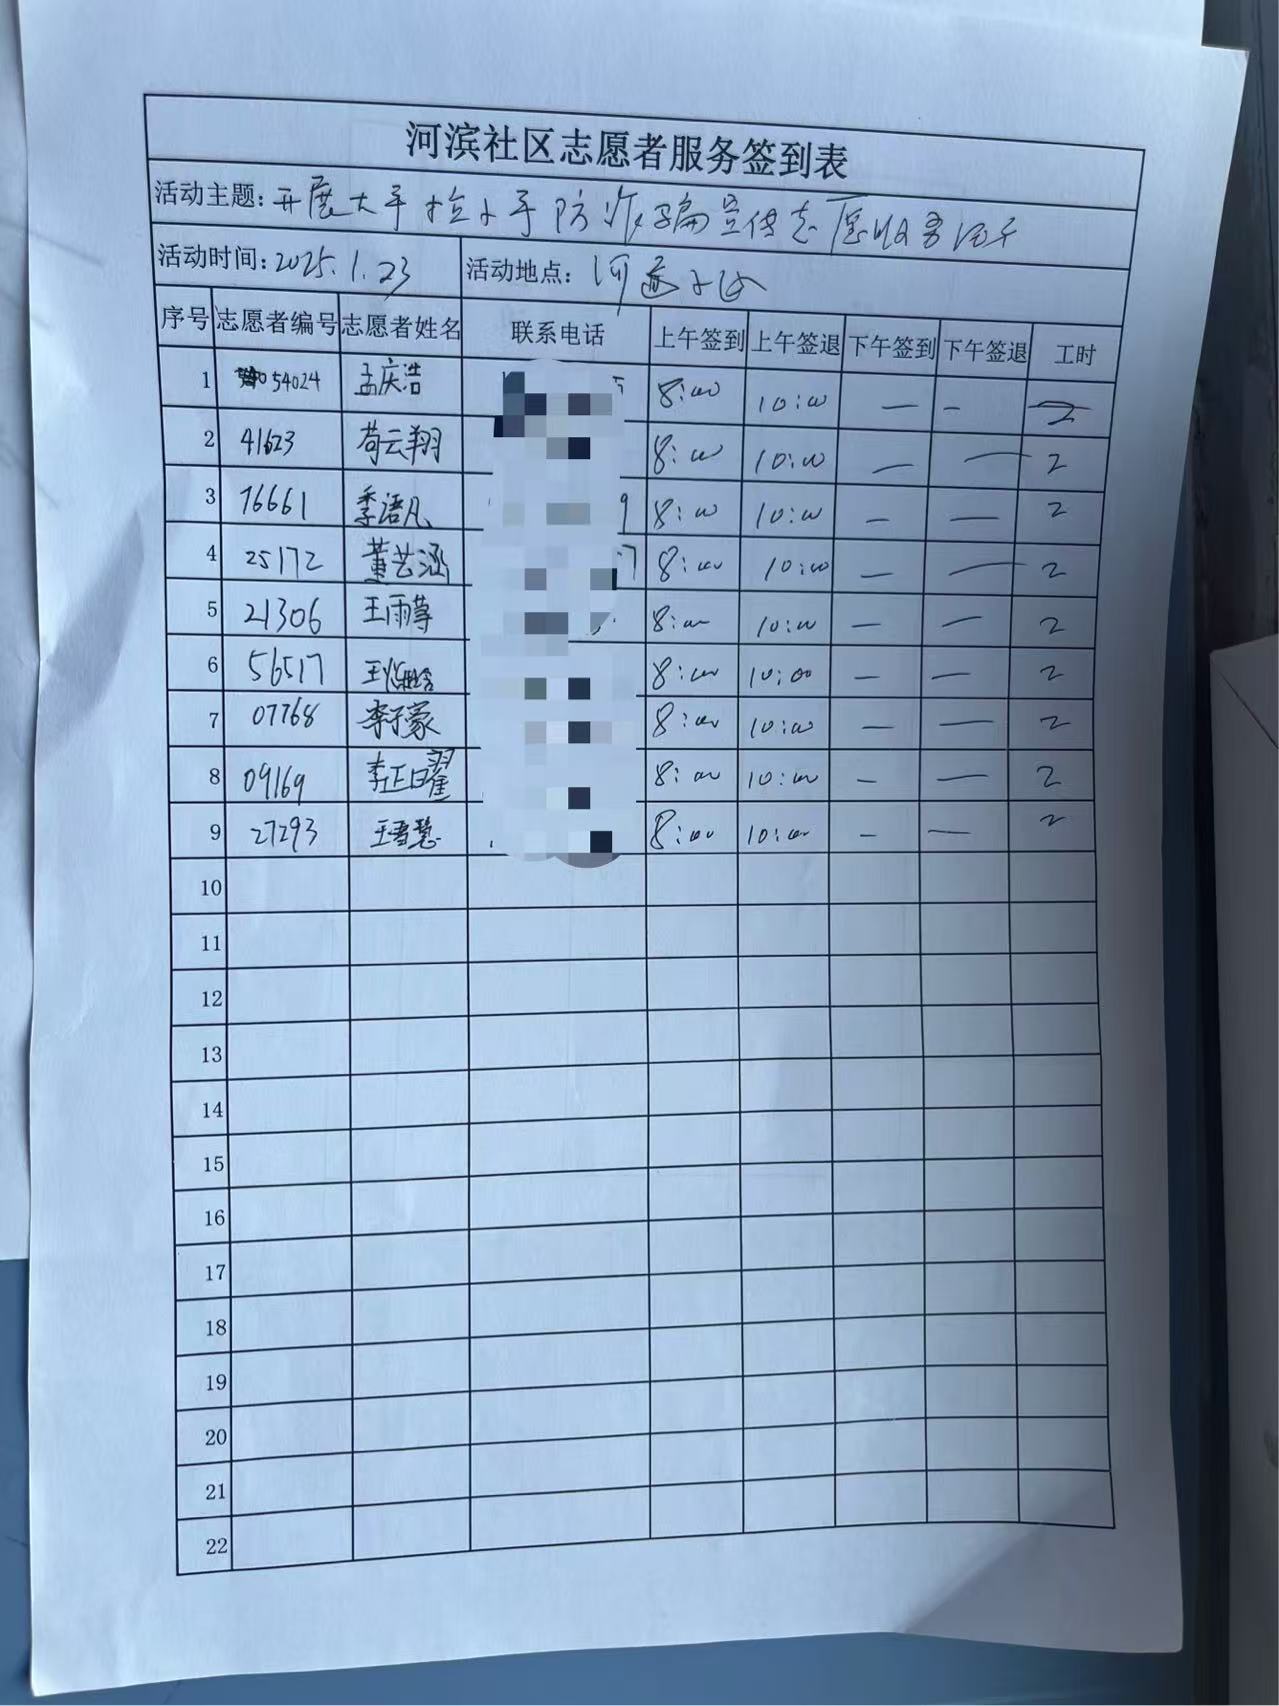 河滨社区志愿者服务签到表
活动主题：开展大手拉小手防诈骗宣传志愿服务活动
活动时间：2025.1.23 活动地点：河
序号 志愿者编号 志愿者姓名 联系电话 上午签到 上午签退 下午签到 下午签退 工时
1 54024 孟庆浩 8:00 10:00 — — 2
2 41623 苟云翔 8:00 10:00 — — 2
3 76661 季语凡 9 8:00 10:00 — — 2
4 25172 董艺涵 7 8:00 10:00 — — 2
5 21306 王雨 8:00 10:00 — — 2
6 56517 王 8:00 10:00 — — 2
7 07768 李子豪 8:00 10:00 — — 2
8 09169 李正曜 8:00 10:00 — — 2
9 27293 王雪慧 8:00 10:00 — — 2
10
11
12
13
14
15
16
17
18
19
20
21
22